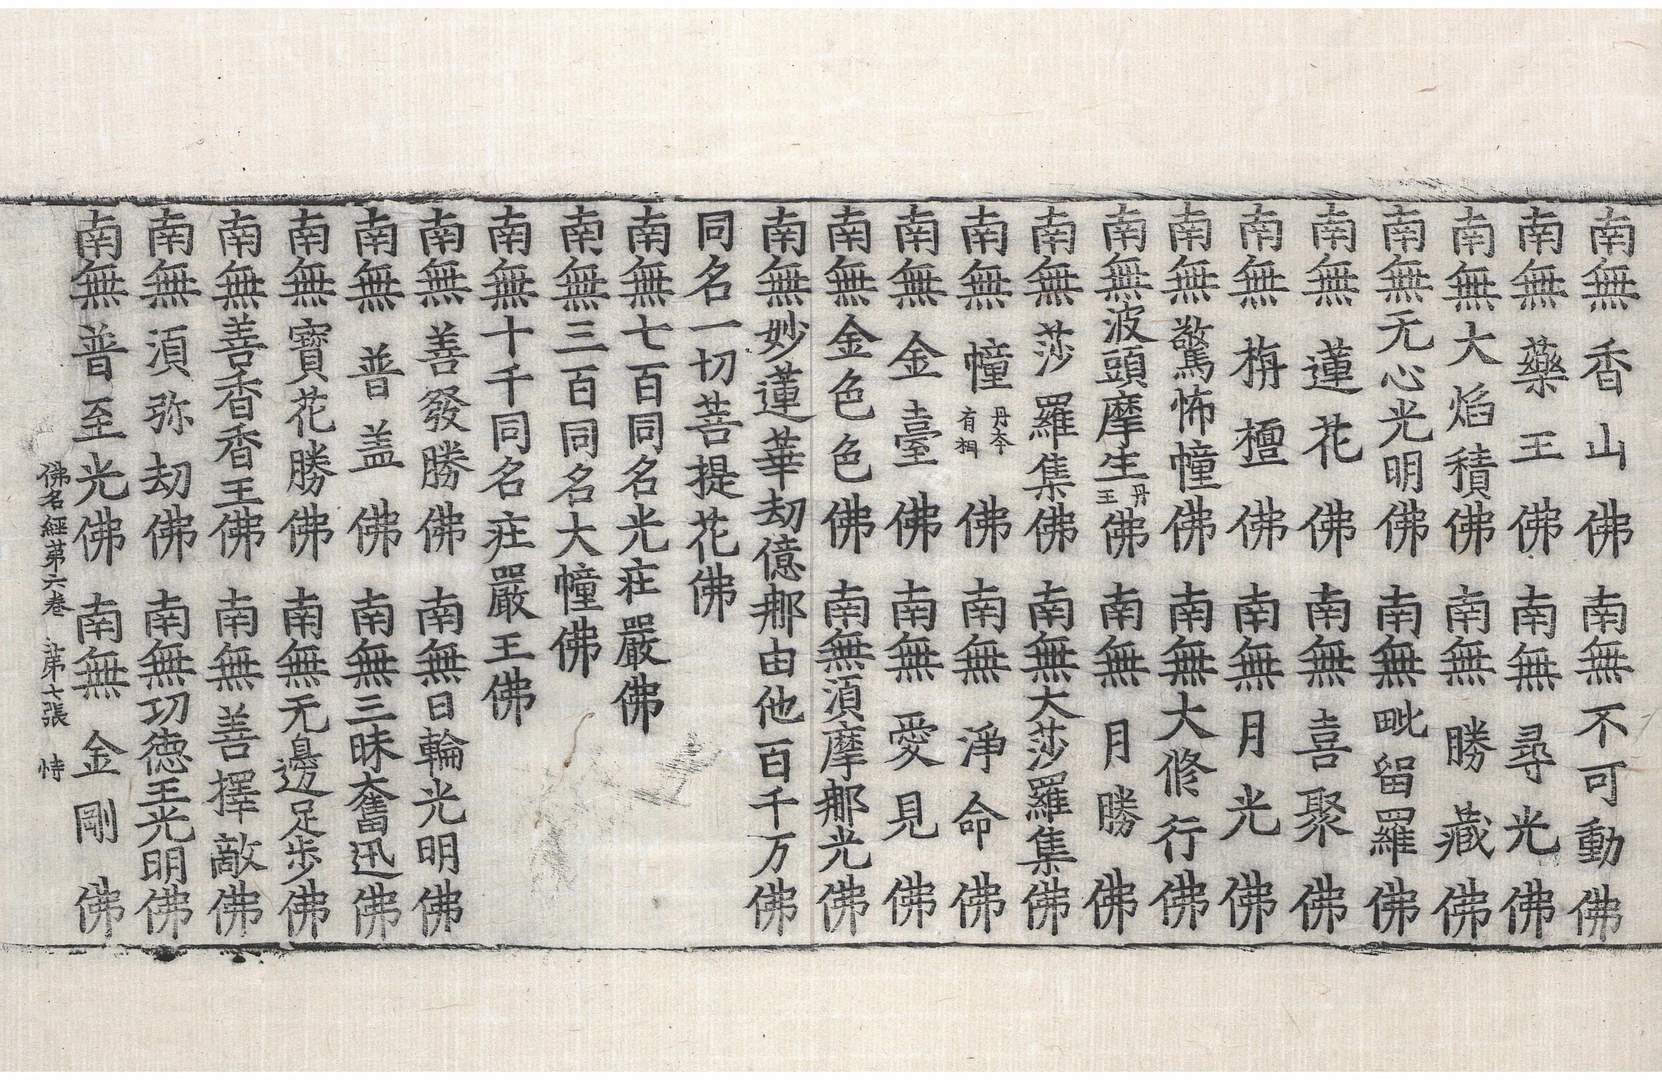 南無香山佛 南無不可動佛
南無藥王佛 南無尋光佛
南無大焰積佛 南無勝藏佛
南無无心光明佛 南無毗留羅佛
南無蓮花佛 南無喜聚佛
南無栴檀佛 南無月光佛
南無驚怖幢佛 南無大修行佛
南無波頭摩生丹王佛 南無月勝佛
南無莎羅集佛 南無大莎羅集佛
南無幢丹本有相佛 南無淨命佛
南無金臺佛 南無愛見佛
南無金色色佛 南無湏摩那光佛
南無妙蓮華劫億那由他百千万佛
同名一切菩提花佛
南無七百同名光莊嚴佛
南無三百同名大幢佛
南無十千同名莊嚴王佛
南無善發勝佛 南無日輪光明佛
南無普盖佛 南無三昧奮迅佛
南無寶花勝佛 南無无邊足步佛
南無善香香王佛 南無善擇敵佛
南無湏弥劫佛 南無功德王光明佛
南無普至光佛 南無金剛佛
佛名經第六卷 第七張 恃